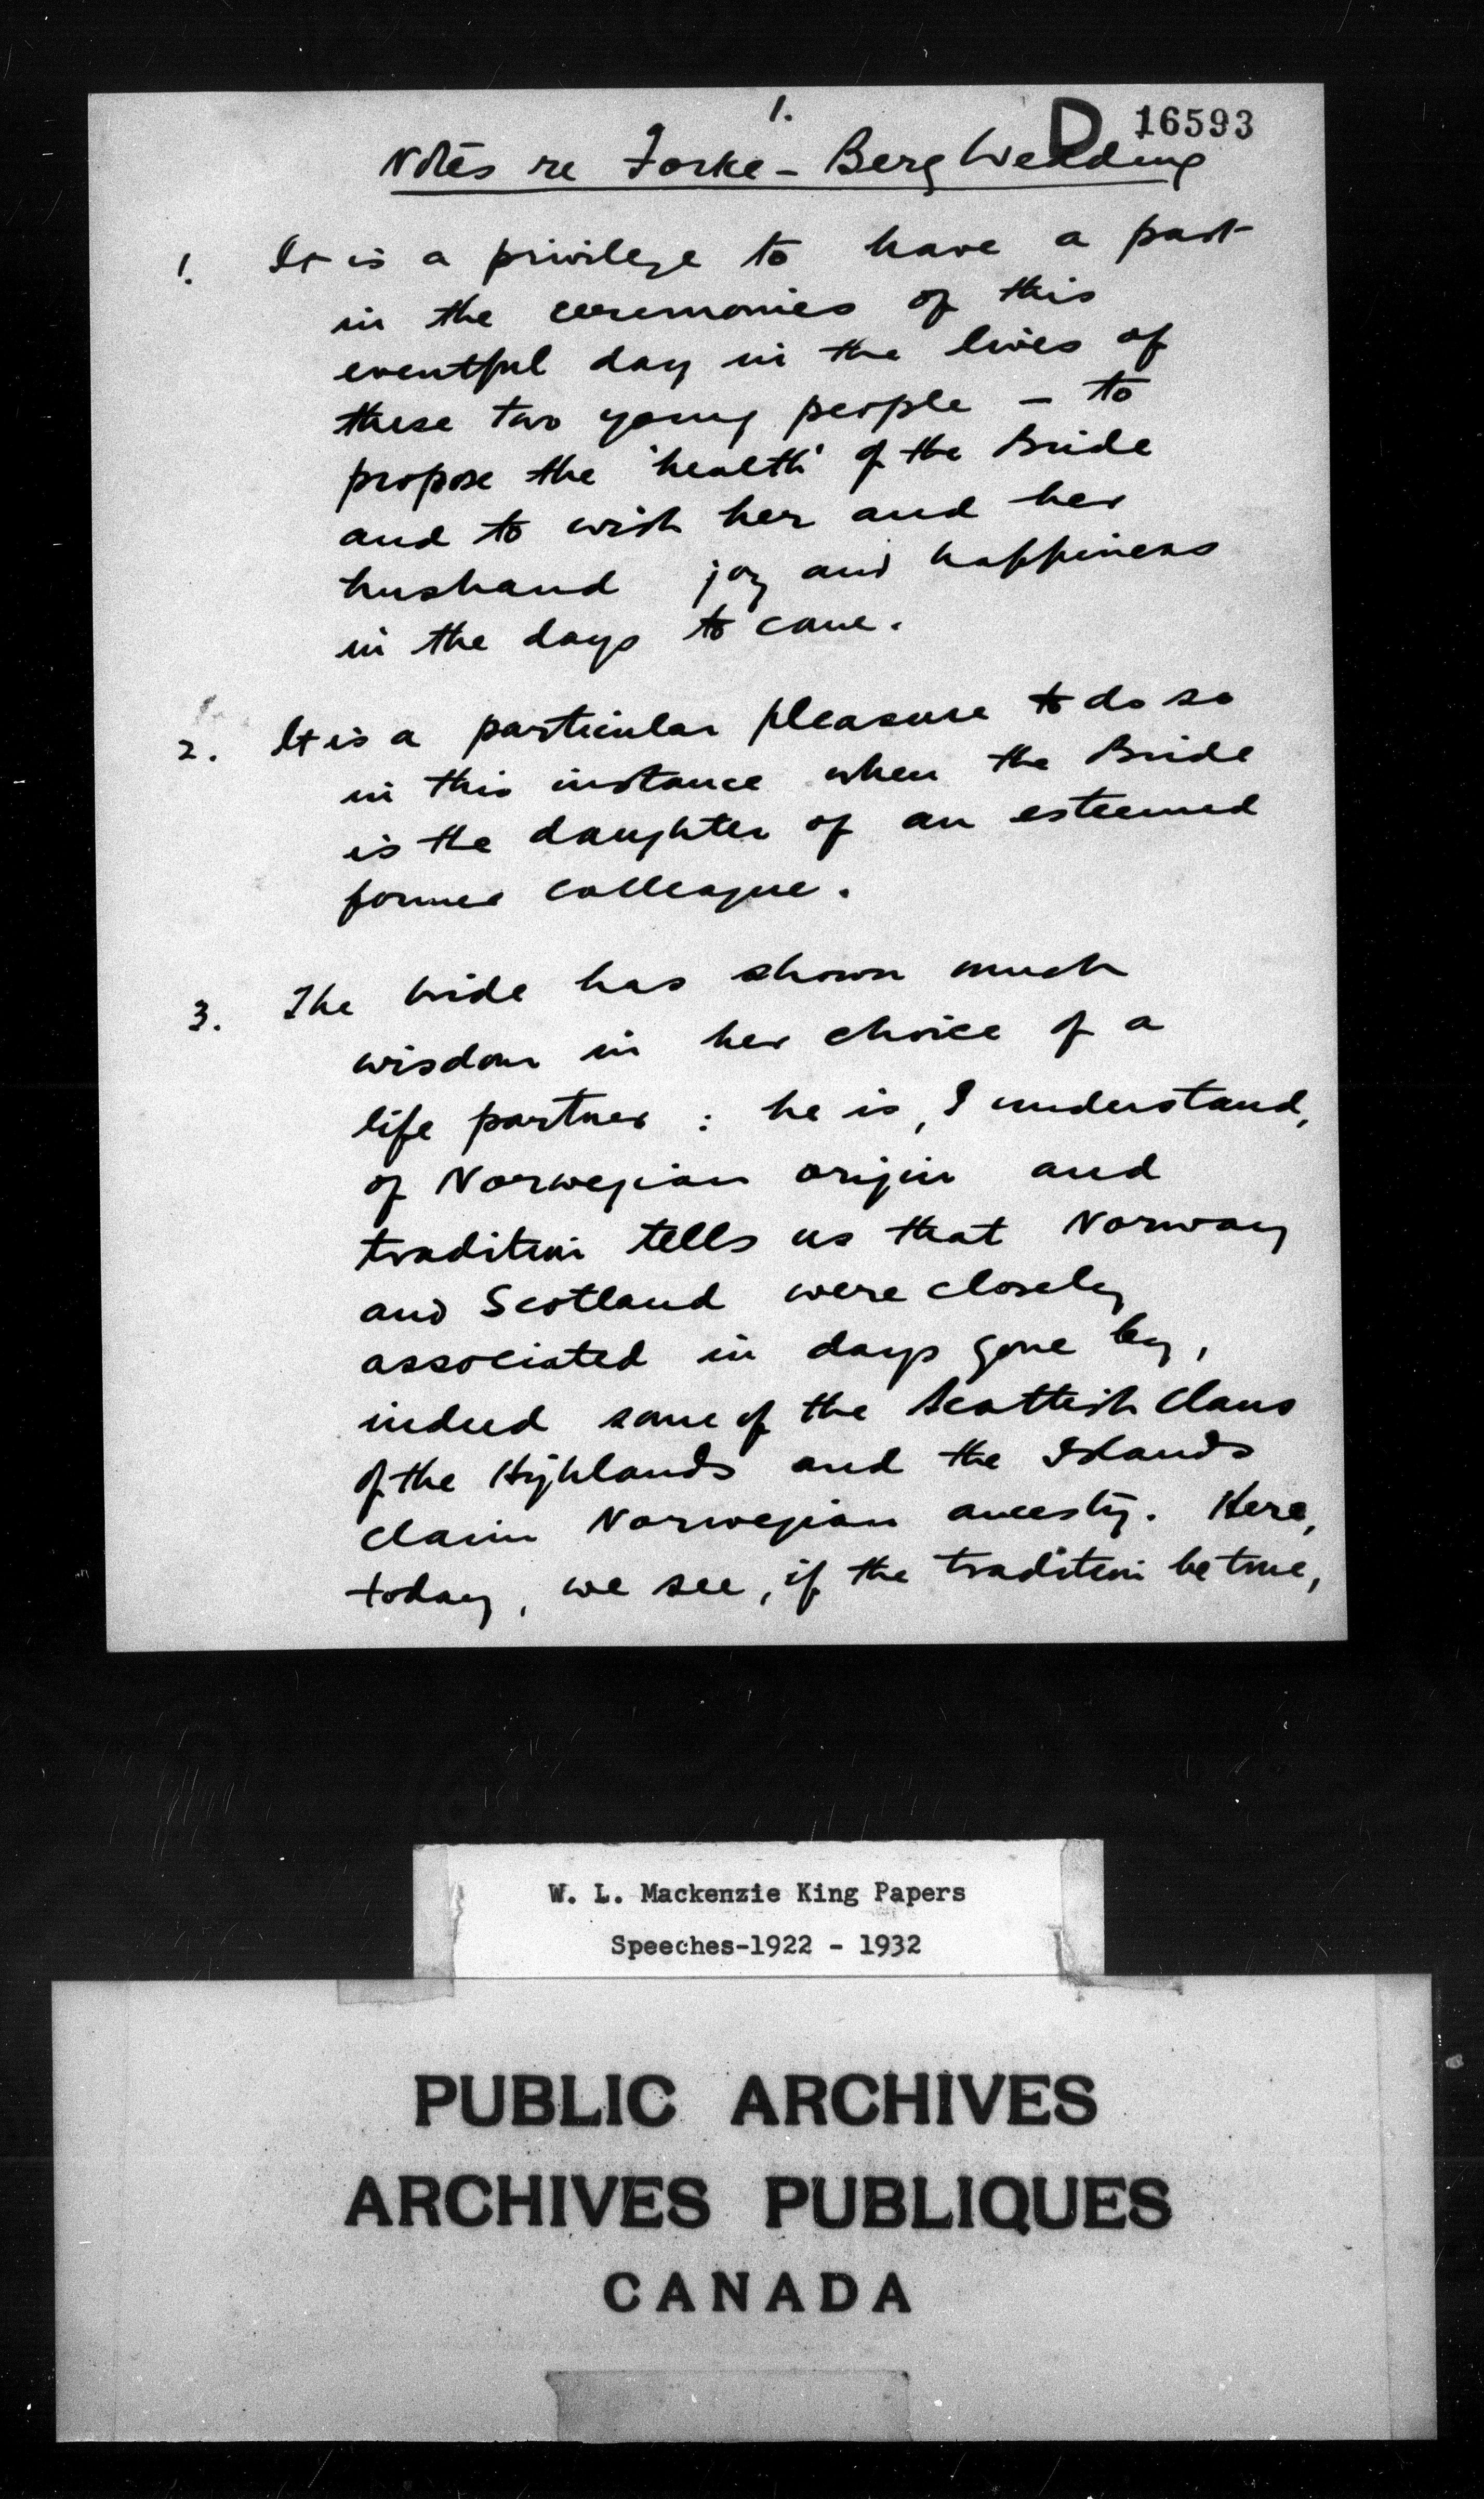 1.
D 16593
Notes re Forke - Berg Wedding
1. It is a privilege to have a part
in the ceremonies of this
eventful day in the lives of
these two young people - to
propose the 'health' of the Bride
and to wish her and her
husband joy and happiness
in the days to come.
2. It is a particular pleasure to do so
in this instance when the Bride
is the daughter of an esteemed
former colleague.
3. The bride has shown much
wisdom in her choice of a
life partner : he is, I understand,
of Norwegian origin and
tradition tells us that Norway
and Scotland were closely
associated in days gone by,
indeed some of the Scottish Clans
of the Highlands and the Islands
claim Norwegian ancestry. Here,
today, we see, if the tradition be true,
W. L. Mackenzie King Papers
Speeches-1922 - 1932
PUBLIC ARCHIVES
ARCHIVES PUBLIQUES
CANADA